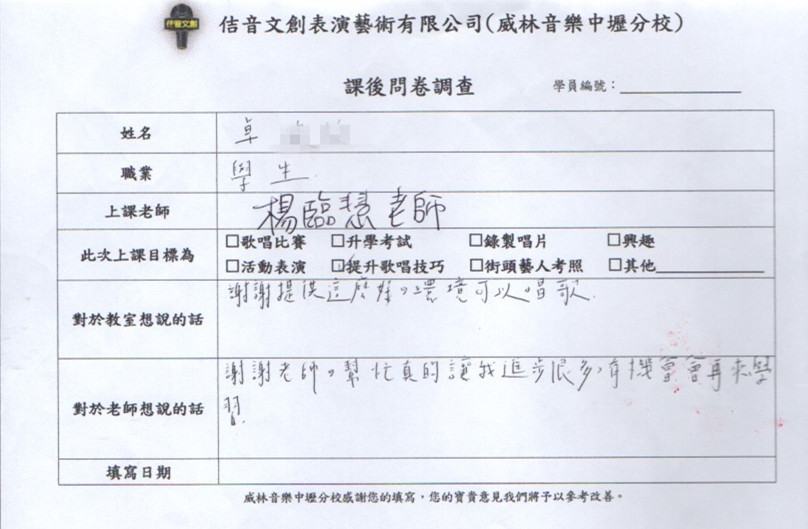 佶音文創
佶音文創表演藝術有限公司(威林音樂中壢分校)
課後問卷調查
學員編號：
姓名 卓
職業 學生
上課老師 楊臨慧老師
此次上課目標為 □歌唱比賽 □升學考試 □錄製唱片 □興趣
□活動表演 □提升歌唱技巧 □街頭藝人考照 □其他
對於教室想說的話 謝謝提供這麼好的環境可以唱歌.
對於老師想說的話 謝謝老師的幫忙真的讓我進步很多,有機會會再來學
習.
填寫日期
威林音樂中壢分校感謝您的填寫，您的寶貴意見我們將予以參考改善。